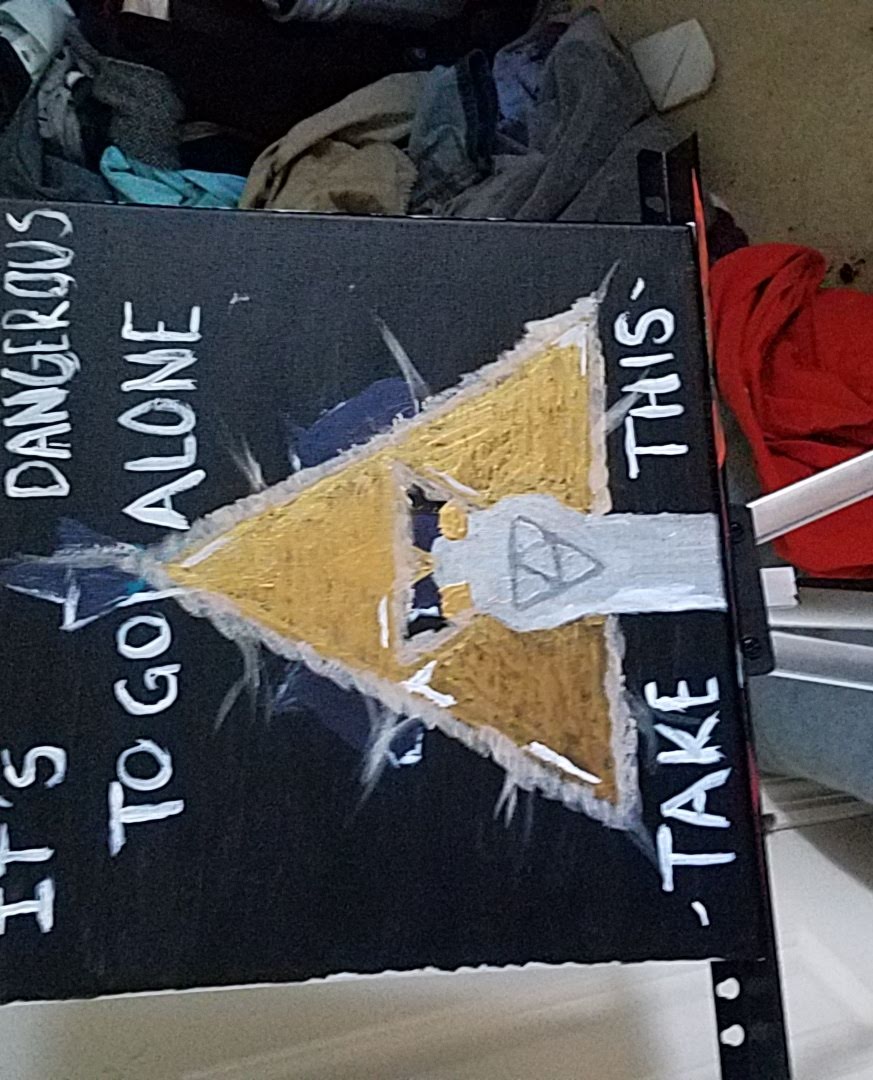 IT'S DANGEROUS
TO GO ALONE
-TAKE THIS-